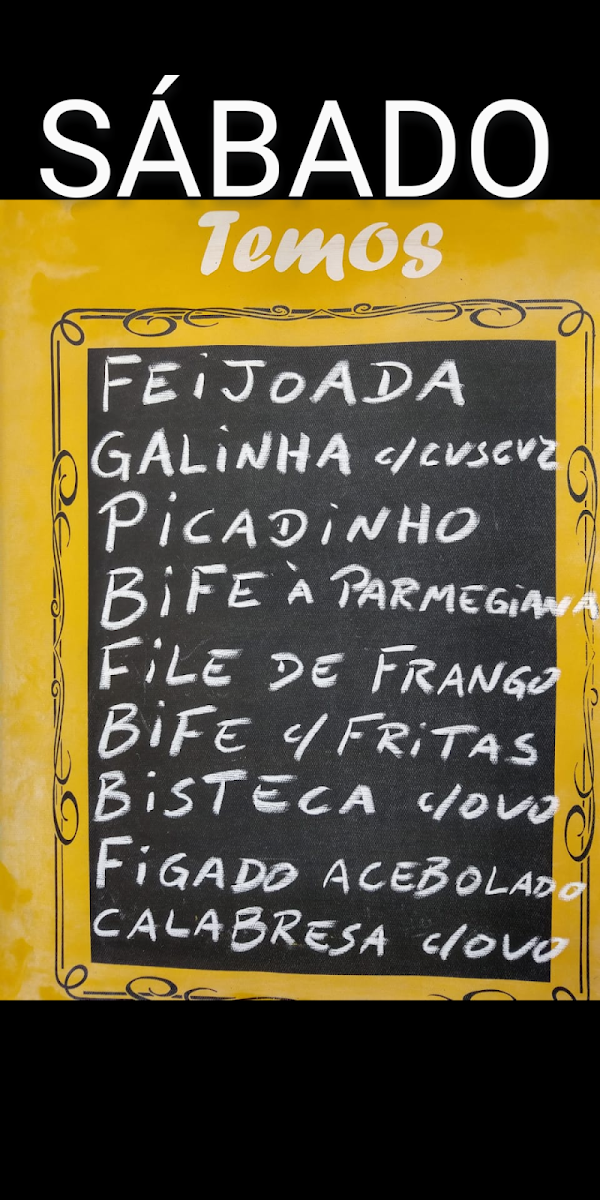 SÁBADO
Temos
FEiJOADA
GALiNHA c/CUSCUZ
PiCADiNHO
BiFE À PARMEGiANA
FiLE DE FRANGO
BiFE c/ FRiTAS
BiSTECA c/OVO
FiGADO ACEBOLADO
CALABRESA c/OVO